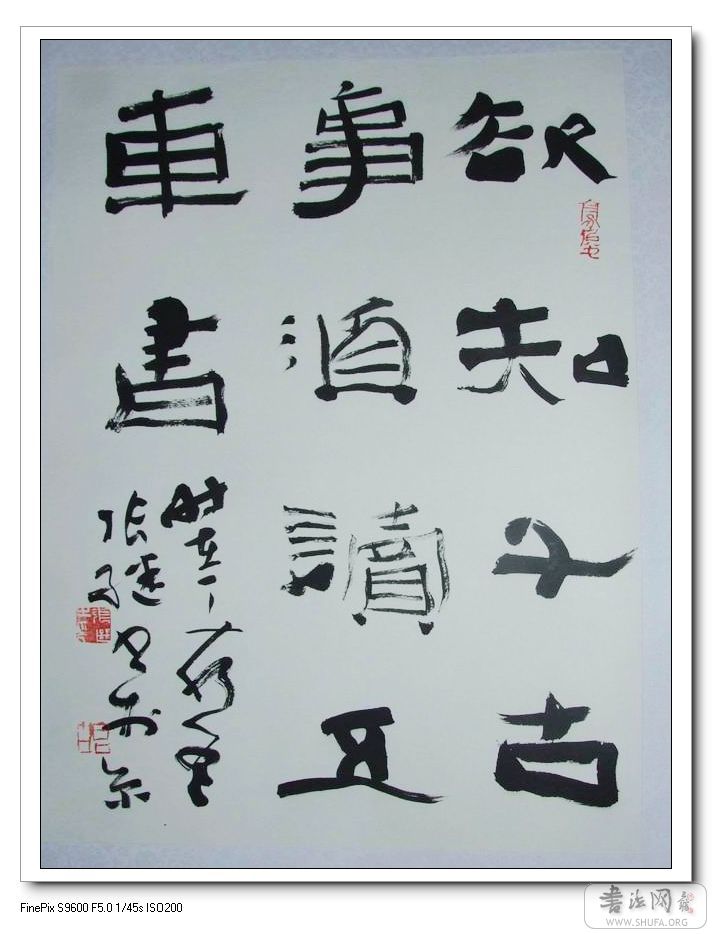 欲知千古
事須讀五
車書
時在丁
張繼書於京
FinePix S9600 F5.0 1/45s ISO200
書法网
WWW.SHUFA.ORG